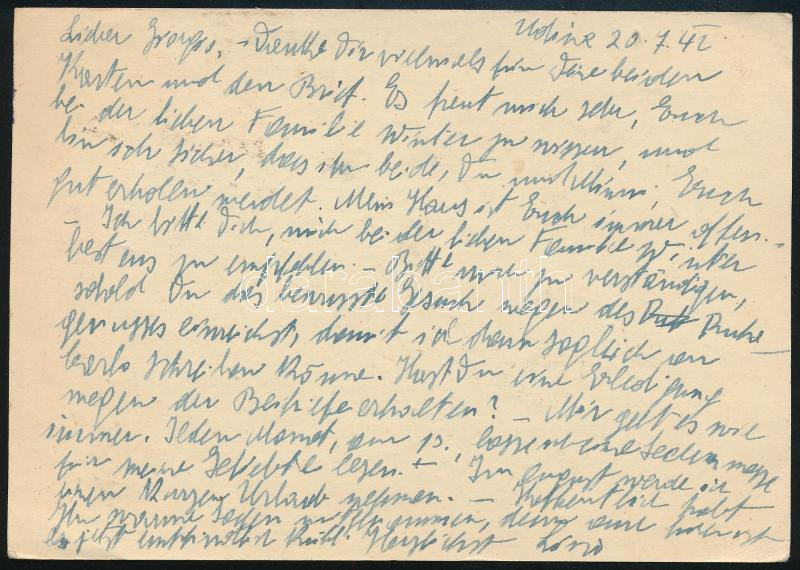 Udine 20.7.42
Lieber Giorgio, – Danke Dir vielmals für Deine beiden
Karten und den Brief. Es freut mich sehr, Euch
bei der lieben Familie Winter zu wissen, und
bin ich sicher, dass ihr beide, Du und Mimi, Euch
gut erholen werdet. Mein Haus ist Euch immer offen. –
– Ich bitte Dich, mich bei der lieben Familie Winter
bestens zu empfehlen. – Bitte mich zu verständigen,
sobald Du das bewusste Gesuch wegen des Ruhe–
genusses einreichst, damit ich dann sogleich an
schreiben könne. Hast Du eine Erledigung
wegen der Beihilfe erhalten? – Mir geht es wie
immer. Jeden Monat, am 13., lasse ich eine Seelenmesse
für meine Geliebte lesen. + Im August werde ich
einen kurzen Urlaub nehmen. – Hoffentlich habt
Ihr warme Sachen mitgenommen, denn am
es jetzt empfindlich kühl. Herzlichst
darabanth